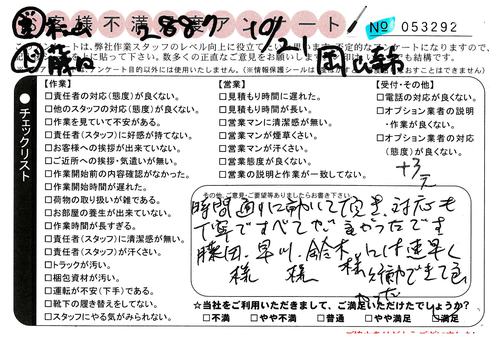 お客様不満足度アンケート!
No 053292
2887 10/21
【作業】
□責任者の対応(態度)が良くない。
□他のスタッフの対応(態度)が良くない。
□作業を見ていて不安がある。
□責任者(スタッフ)に好感が持てない。
□お客様への挨拶が出来ていない。
□ご近所への挨拶・気遣いが無い。
□作業開始前の内容確認がなかった。
□作業開始時間が遅れた。
□荷物の取り扱いが雑である。
□お部屋の養生が出来ていない。
□作業時間が長すぎる。
□責任者(スタッフ)に清潔感が無い。
□責任者(スタッフ)が汗くさい。
□トラックが汚い。
□梱包資材が汚い。
□運転が不安(下手)である。
□靴下の履き替えをしてない。
□スタッフにやる気がみられない。
【営業】
□見積もり時間に遅れた。
□見積もり時間が長い。
□営業マンに清潔感が無い。
□営業マンが煙草くさい。
□営業マンが汗くさい。
□営業態度が良くない。
□営業の説明と作業が一致してない。
【受付・その他】
□電話の対応が良くない。
□オプション業者の説明
・作業が良くない。
□オプション業者の対応
(態度)が良くない。
●チェックリスト
その他、ご意見・ご要望等ありましたらお書き下さい。
時間通りに動いて頂き、対応も
丁寧ですべてが良かったです
藤田様 早川様 鈴木様には
☆当社をご利用いただきまして、ご満足いただけたでしょうか?
□不満 □やや不満 □普通 □やや満足 □満足